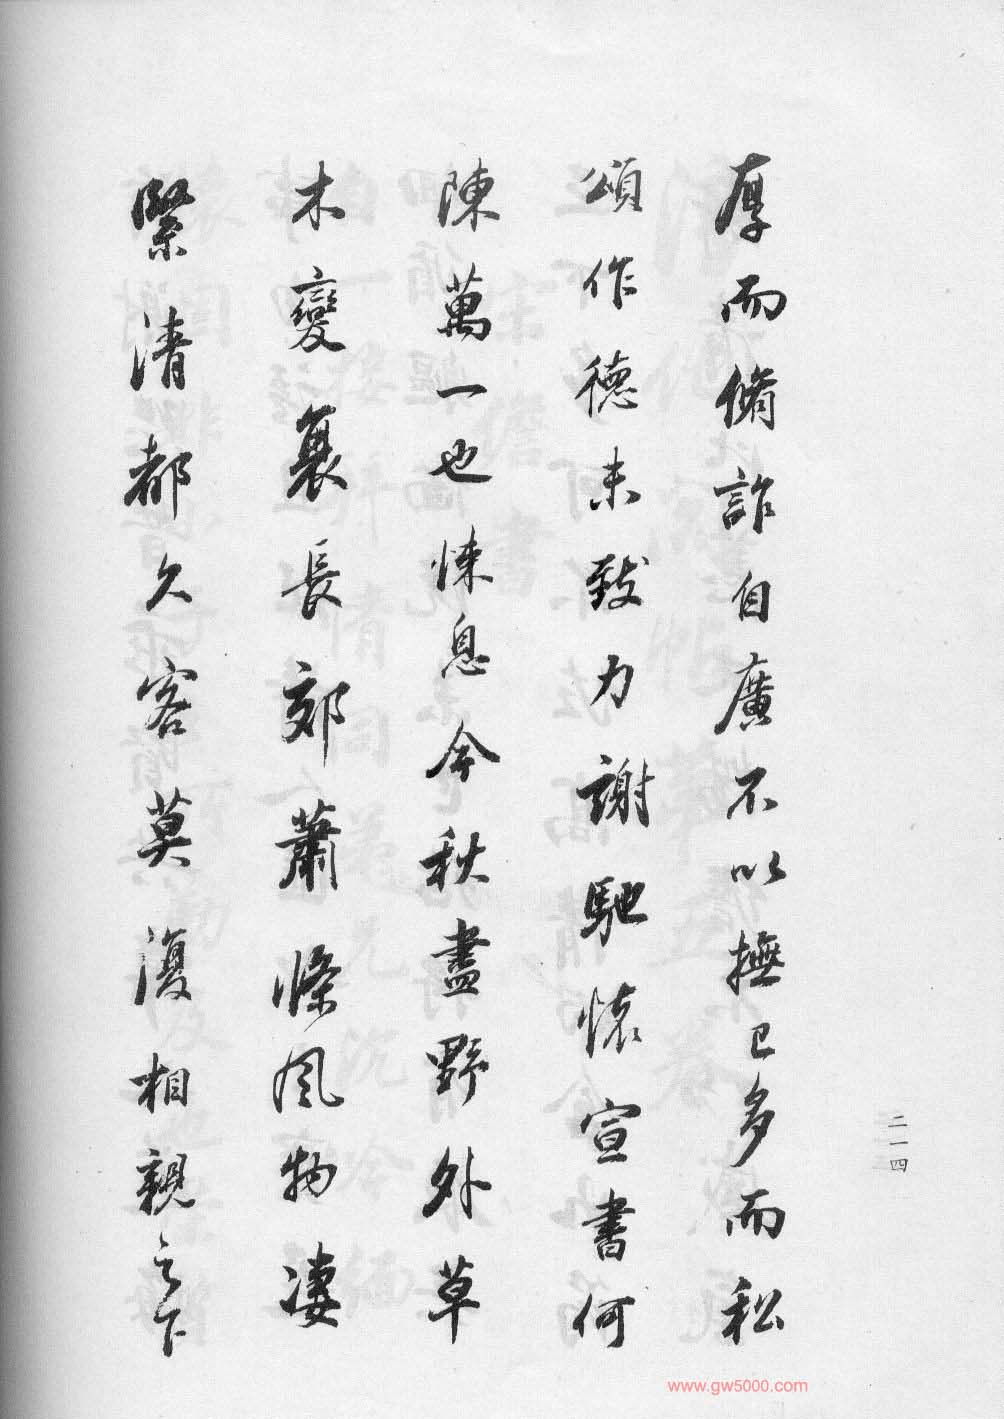 厚而脩詐自廣不以撫已多而私
頌作德未致力謝馳懷宣書何
陳萬一也悚息今秋盡野外草
木變裹長郊蕭條風物淒
緊清都久客莫復相親之下
二一四
www.gw5000.com